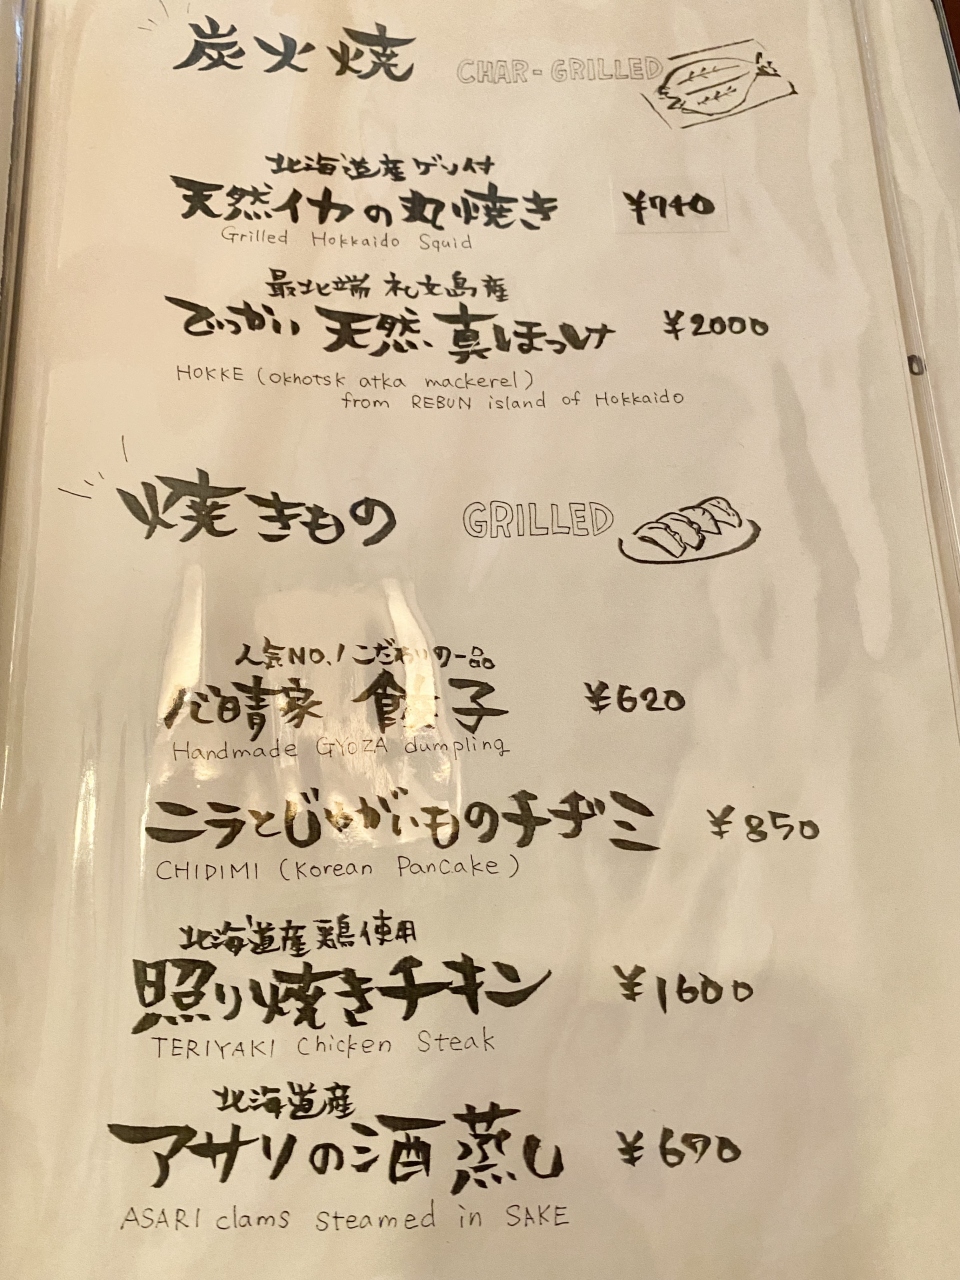 炭火焼 CHAR-GRILLED
北海道産ゲソ付
天然イカの丸焼き ¥740
Grilled Hokkaido Squid
最北端 礼文島産
でっかい 天然、真ほっけ ¥2000
HOKKE (okhotsk atka mackerel)
from REBUN island of Hokkaido
焼きもの GRILLED
人気NO.1こだわりの一品
晴家 餃子 ¥620
Handmade GYOZA dumpling
ニラとじゃがいものチヂミ ¥850
CHIDIMI (Korean Pancake)
北海道産鶏使用
照り焼きチキン ¥1600
TERIYAKI Chicken Steak
北海道産
アサリの酒蒸し ¥670
ASARI clams Steamed in SAKE